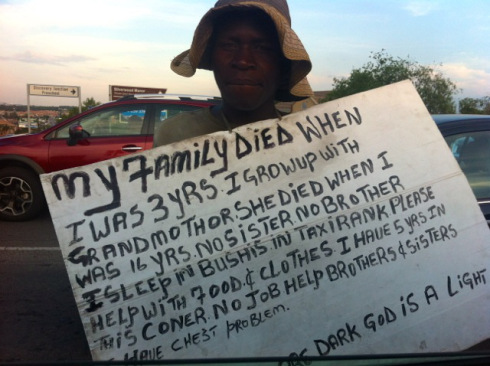 MY 7AMILY DIED WHEN
I WAS 3 YRS. I GROWUP WITH
GRANDMOTHOR. SHE DIED WHEN I
WAS 16 YRS. NO SISTER NO BROTHER
I SLEEP IN BUSHIS IN TAXI RANK PLEASE
HELP WITH 7OOD & CLOTHES. I HAVE 5 YRS IN
THIS CONER. NO JOB HELP BROTHERS & SISTERS
I HAVE CHEST PROBLEM.
DARK GOD IS A LIGHT